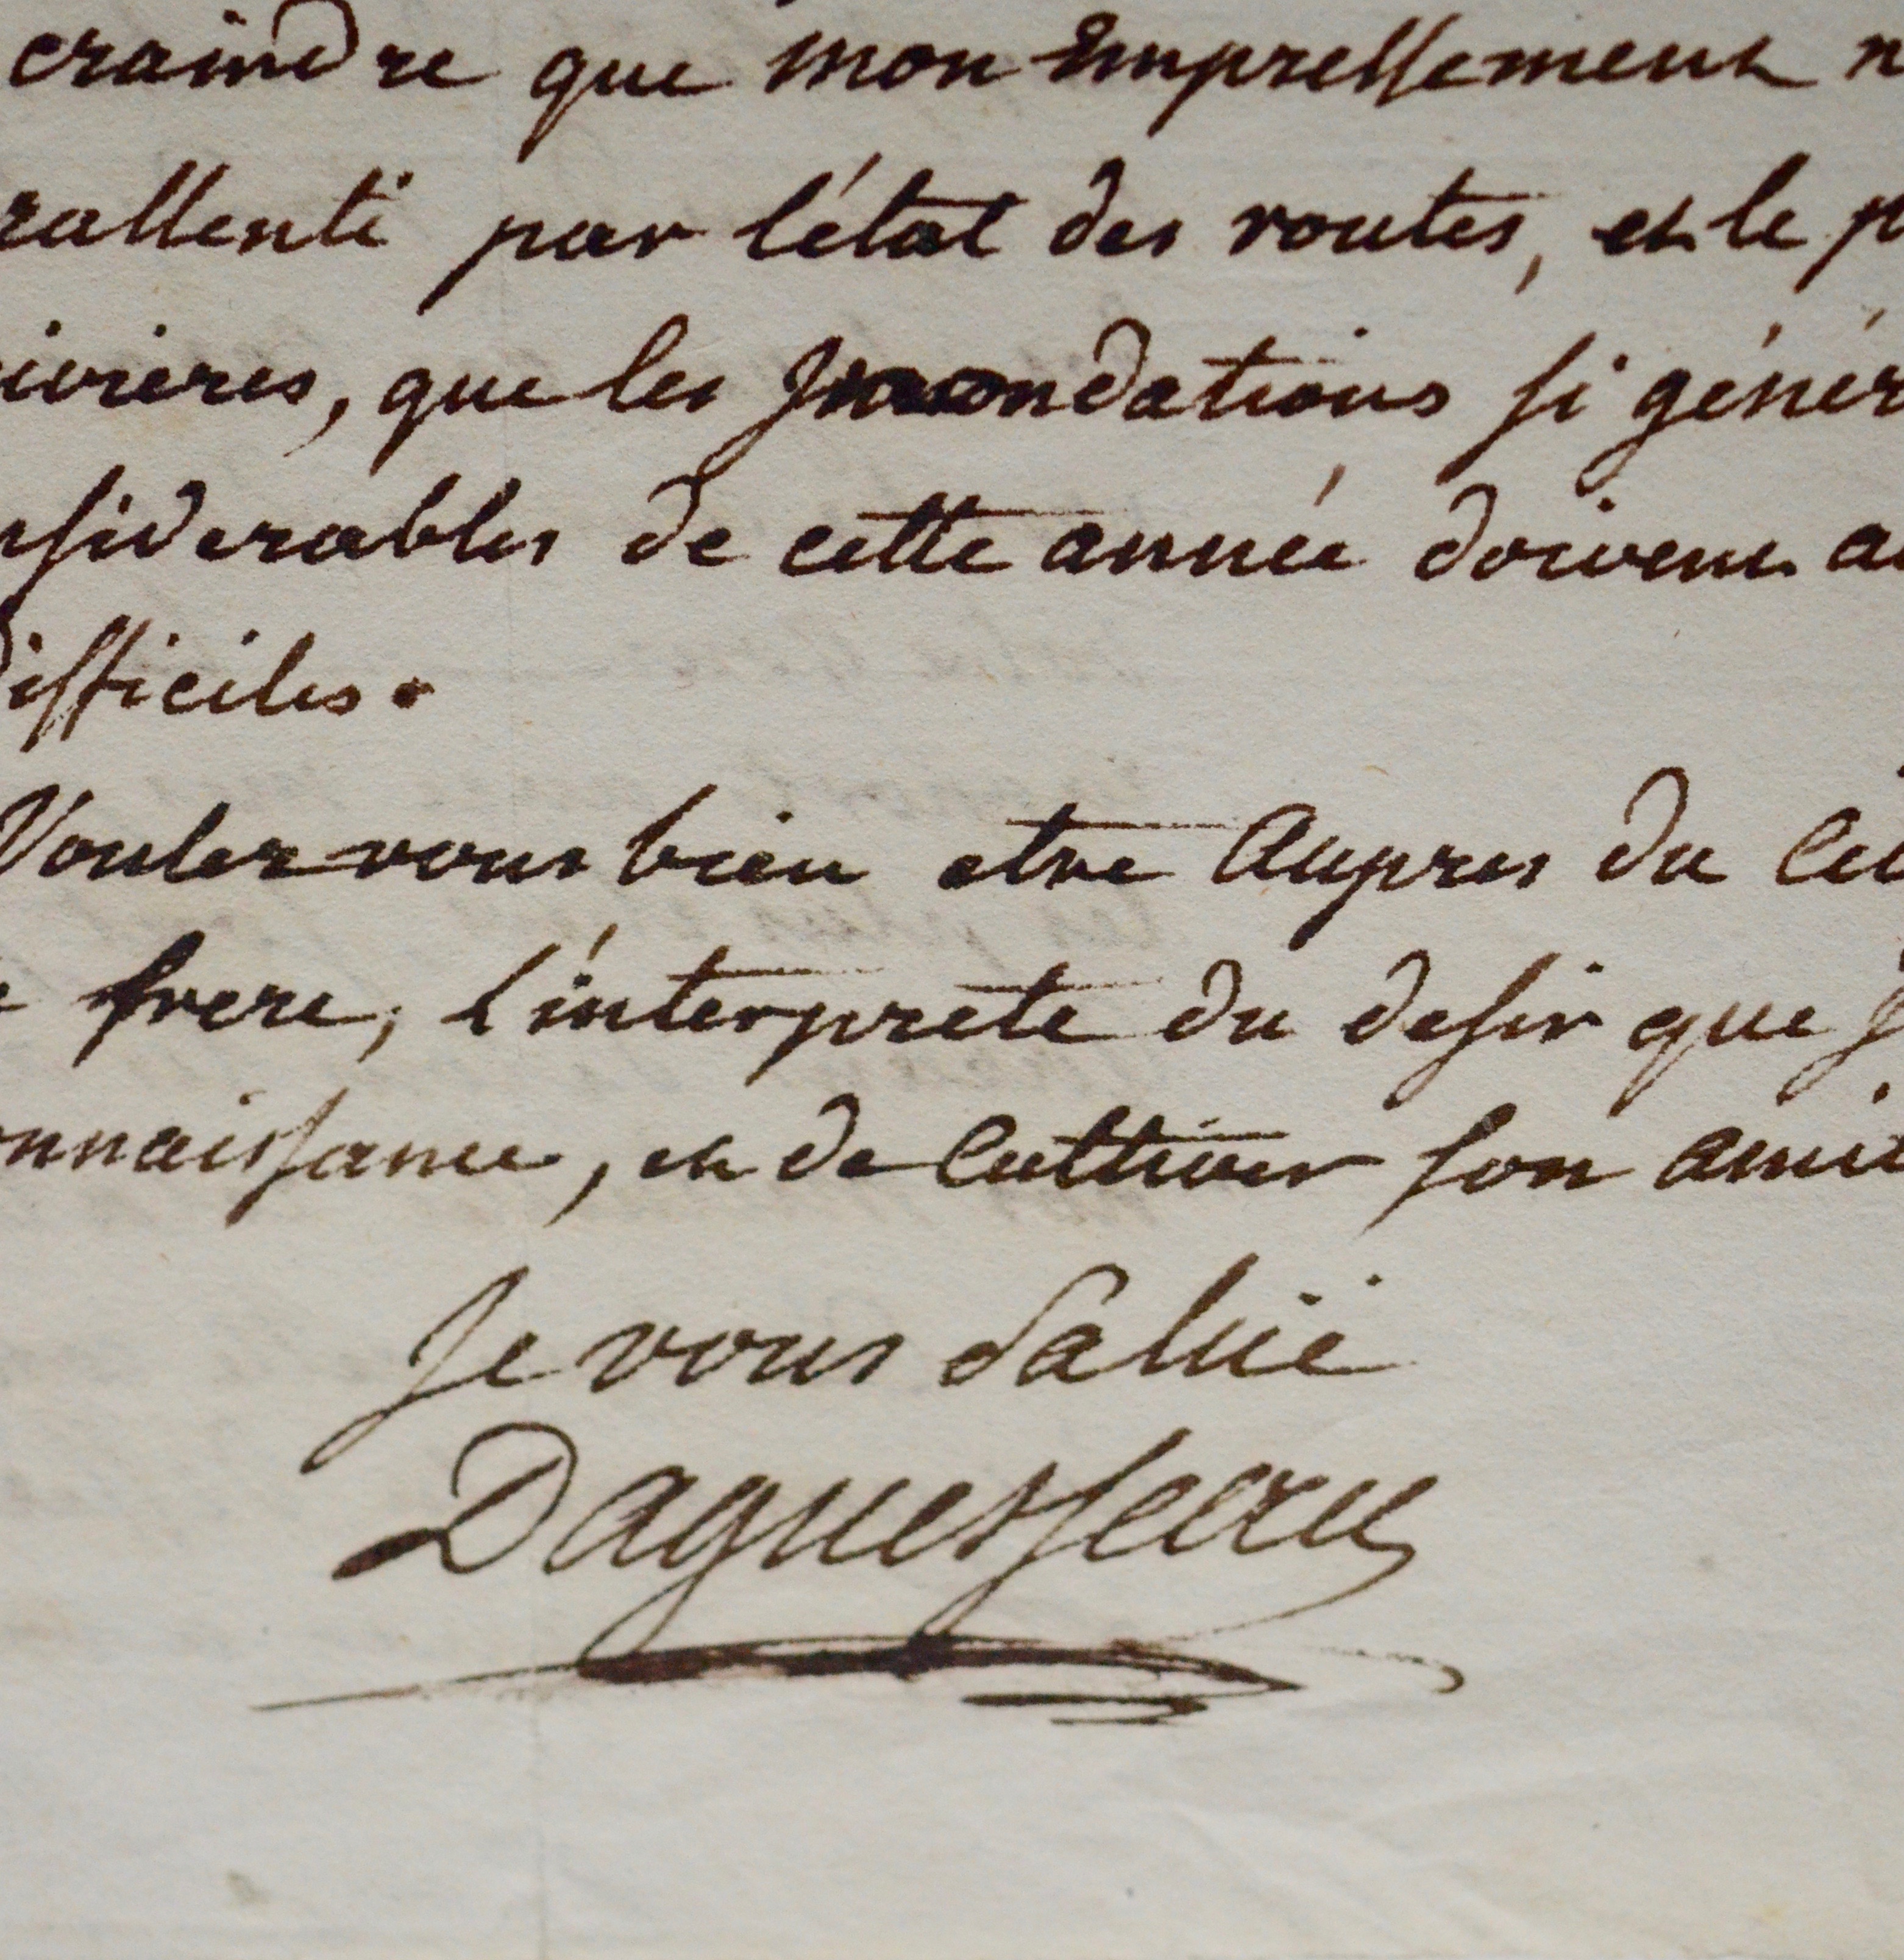 craindre que mon Empressement n
rallenti par l'état des routes, et le p
ivieres, que les Inondations si génér
nsiderables de cette année doivent a
difficiles.
Voulez vous bien etre Aupres du Ci
frere, l'interprete du desir que J
nnaissance, et de Cultiver son ami
Je vous Saluë
Daguesseau